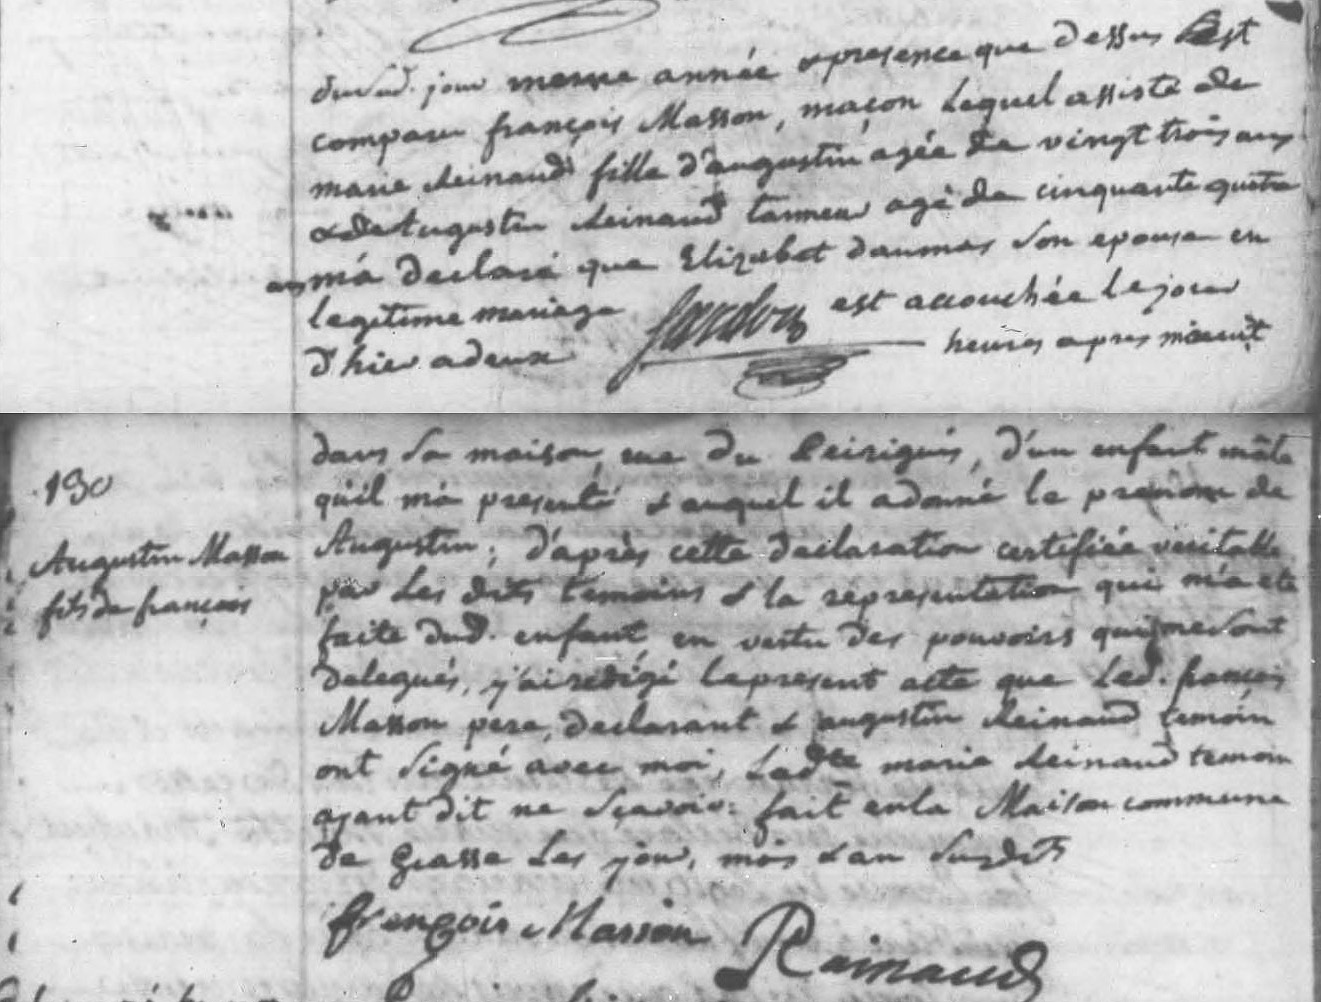 dud. jour meme année & presence que dessus Est
comparu françois Masson, maçon Lequel assisté de
marie Reinaud fille d'augustin agée de vingt trois ans
& de Augustin Reinaud tanneur agé de cinquante quatre
ans m'a declaré que Elizabet daumas son epouse en
legitime mariage est accouchée le jour
d'hier a deux heures apres minuit
dans sa maison rue du Peiriguis, d'un enfant mâle
qu'il m'a presenté & auquel il a donné le prenom de
130
Augustin Masson
fils de françois
Augustin; d'après cette declaration certifiée veritable
par Les dits temoins & la representation qui m'a eté
faite dud. enfant, en vertu des pouvoirs qui me sont
delegués, j'ai redigé le present acte que Led. françois
Masson pere, declarant & augustin Reinaud temoin
ont signé avec moi, Ladte marie Reinaud temoin
ayant dit ne sçavoir: fait en la Maison commune
de Grasse Les jour, mois & an susdits
françois Masson Raimaud